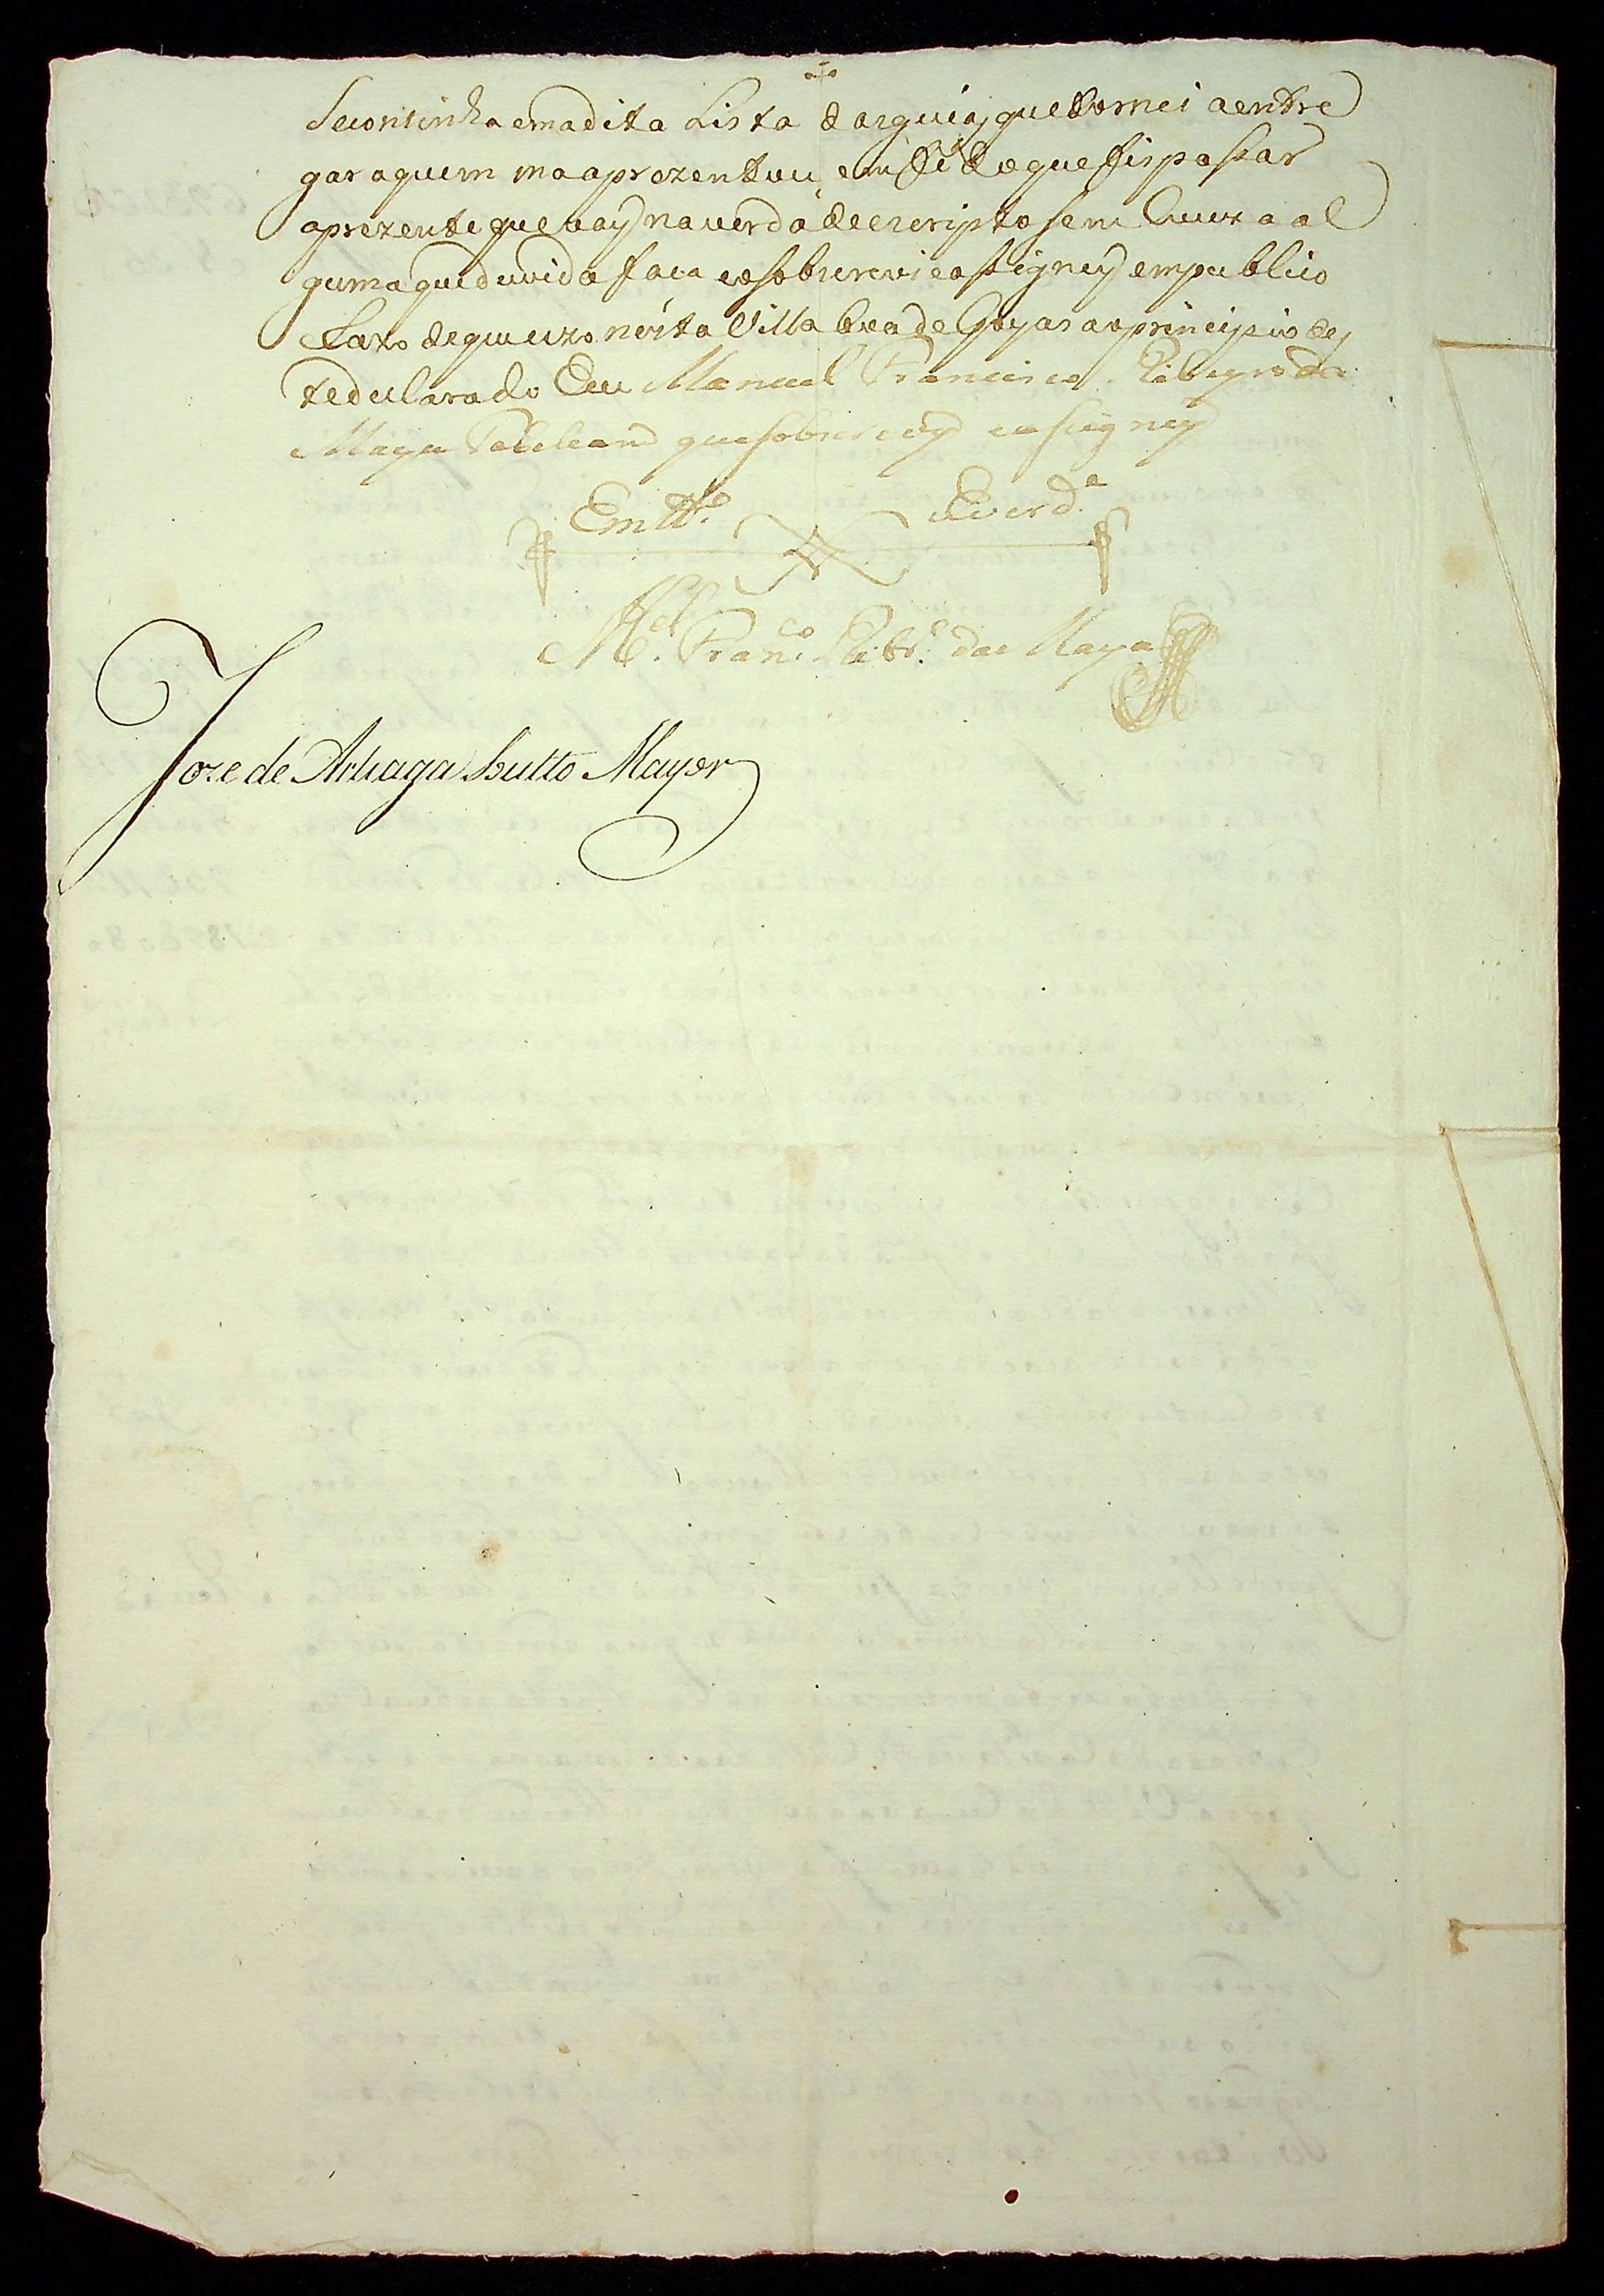 Secontinha emadita Lista dasguias, quetornei aentre
gar aquem maaprezentou, emffédoquefispassar
aprezentequevay naverdadeescripto sem Couza al
guma queduvida faca esobscrevieassigney empublico
eRazo deque uzo nésta Villa boa de Goyas aoprincipio des
tedeclarado Eu Manuel Francisco Ribeyro da
Maya Tabeleam quesobscrevy easigney
EmTt.º deverd.e
M.el Fran.co Ribr.º da Maya
Joze de Arriaga Sutto Mayor